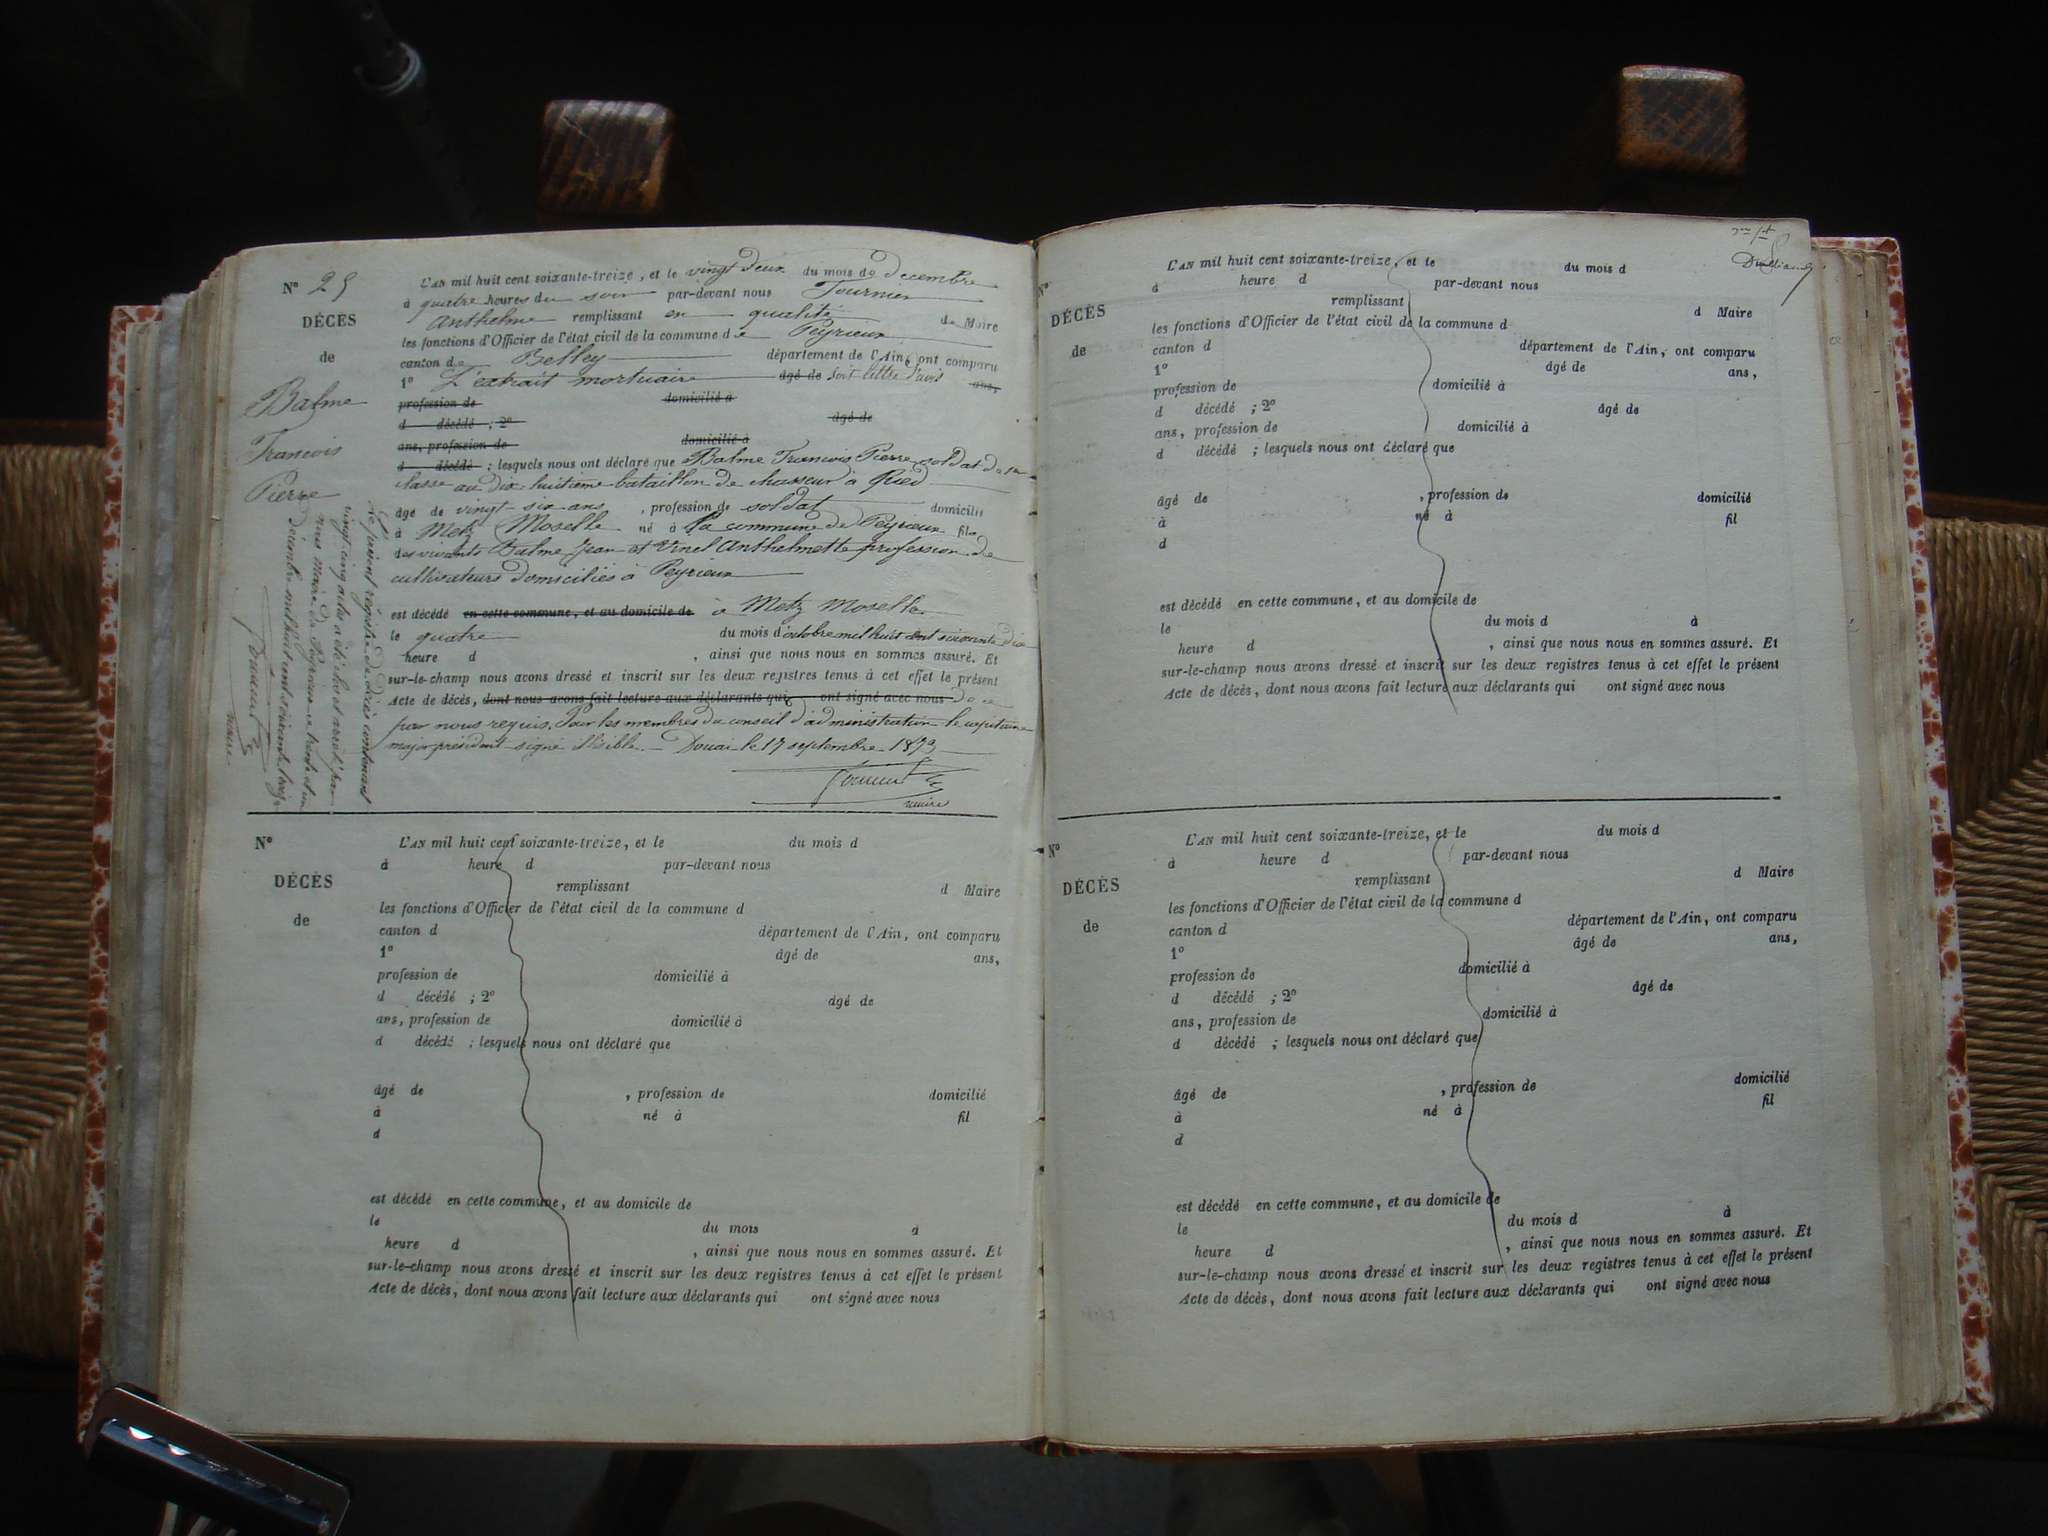 N° 25
DÉCÈS
de
Balme
Francois
Pierre
L'AN mil huit cent soixante-treize, et le vingt deux du mois de decembre
à quatre heures du soir par-devant nous Tournier
Anthelme remplissant en qualité de Maire
les fonctions d'Officier de l'état civil de la commune de Peyrieux
canton de Belley département de l'Ain, ont comparu
1° L'extrait mortuaire âgé de soit lettre d'avis ans,
profession de domicilié à
d décédé ; 2° âgé de
ans, profession de domicilié à
d décédé ; lesquels nous ont déclaré que Balme Francois Pierre soldat de 1re
classe au dix huitieme bataillon de chasseur à Pied
âgé de vingt-six ans , profession de soldat domicilié
à Metz Moselle né à la commune de Peyrieux fils
des vivants Balme Jean et Vinel Anthelmette profession de
cultivateurs domiciliés à Peyrieux
est décédé en cette commune, et au domicile de à Metz Moselle
le quatre du mois d'octobre mil huit cent soixante dix
heure d , ainsi que nous nous en sommes assuré. Et
sur-le-champ nous avons dressé et inscrit sur les deux registres tenus à cet effet le présent
Acte de décès, dont nous avons fait lecture aux déclarants qui ont signé avec nous de ce
par nous requis. Pour les membres du conseil d'administration le capitaine
major président signé illisible. Douai le 17 septembre 1873
maire
Le présent régistre de décès contenant
vingt cinq actes a été clos et arrêté par
nous maire de Peyrieux ce trente et un
décembre mil huit cent soixante treize
maire
N°
DÉCÈS
de
L'AN mil huit cent soixante-treize, et le du mois d
à heure d par-devant nous
remplissant d Maire
les fonctions d'Officier de l'état civil de la commune d
canton d département de l'Ain, ont comparu
1° âgé de ans,
profession de domicilié à
d décédé ; 2° âgé de
ans, profession de domicilié à
d décédé ; lesquels nous ont déclaré que
âgé de , profession de domicilié
à né à fil
d
est décédé en cette commune, et au domicile de
le du mois à
heure d , ainsi que nous nous en sommes assuré. Et
sur-le-champ nous avons dressé et inscrit sur les deux registres tenus à cet effet le présent
Acte de décès, dont nous avons fait lecture aux déclarants qui ont signé avec nous
N°
DÉCÈS
de
L'AN mil huit cent soixante-treize, et le du mois d
à heure d par-devant nous
remplissant d Maire
les fonctions d'Officier de l'état civil de la commune d
canton d département de l'Ain, ont comparu
1° âgé de ans,
profession de domicilié à
d décédé ; 2° âgé de
ans, profession de domicilié à
d décédé ; lesquels nous ont déclaré que
âgé de , profession de domicilié
à né à fil
d
est décédé en cette commune, et au domicile de
le du mois d à
heure d , ainsi que nous nous en sommes assuré. Et
sur-le-champ nous avons dressé et inscrit sur les deux registres tenus à cet effet le présent
Acte de décès, dont nous avons fait lecture aux déclarants qui ont signé avec nous
N°
DÉCÈS
de
L'AN mil huit cent soixante-treize, et le du mois d
à heure d par-devant nous
remplissant d Maire
les fonctions d'Officier de l'état civil de la commune d
canton d département de l'Ain, ont comparu
1° âgé de ans,
profession de domicilié à
d décédé ; 2° âgé de
ans, profession de domicilié à
d décédé ; lesquels nous ont déclaré que
âgé de , profession de domicilié
à né à fil
d
est décédé en cette commune, et au domicile de
le du mois d à
heure d , ainsi que nous nous en sommes assuré. Et
sur-le-champ nous avons dressé et inscrit sur les deux registres tenus à cet effet le présent
Acte de décès, dont nous avons fait lecture aux déclarants qui ont signé avec nous